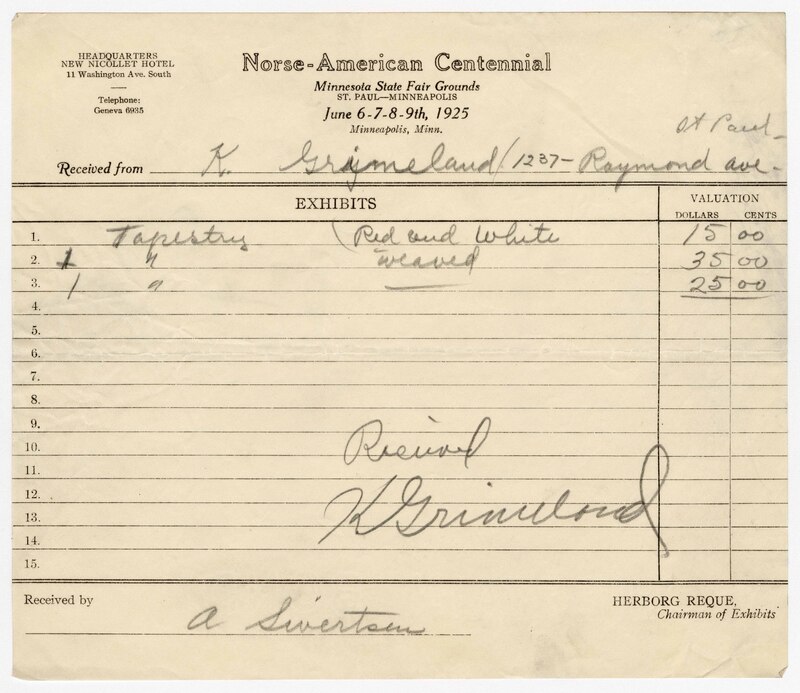 HEADQUARTERS
NEW NICOLLET HOTEL
11 Washington Ave. South
Telephone:
Geneva 6935
Norse-American Centennial
Minnesota State Fair Grounds
ST. PAUL—MINNEAPOLIS
June 6-7-8-9th, 1925
Minneapolis, Minn.
St Paul-
Received from K. Grimeland / 1237- Raymond ave.
EXHIBITS
VALUATION
DOLLARS CENTS
1. Tapestry (Red and White 15 00
2. 1 " weaved 35 00
3. 1 " 25 00
4.
5.
6.
7.
8.
9.
10. Received
11.
12.
13. K Grimeland
14.
15.
Received by A Sivertsen
HERBORG REQUE,
Chairman of Exhibits